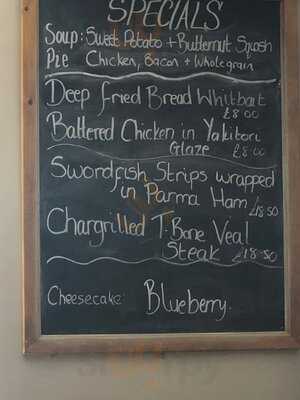 SPECIALS
Soup: Sweet Potato + Butternut Squash
Pie Chicken, Bacon + Wholegrain
Deep fried Bread Whitbait
£8.00
Battered Chicken in Yakitori
Glaze £8.00
Swordfish Strips wrapped
in Parma Ham £18.50
Chargrilled T. Bone Veal
Steak £18.50
Cheesecake: Blueberry.